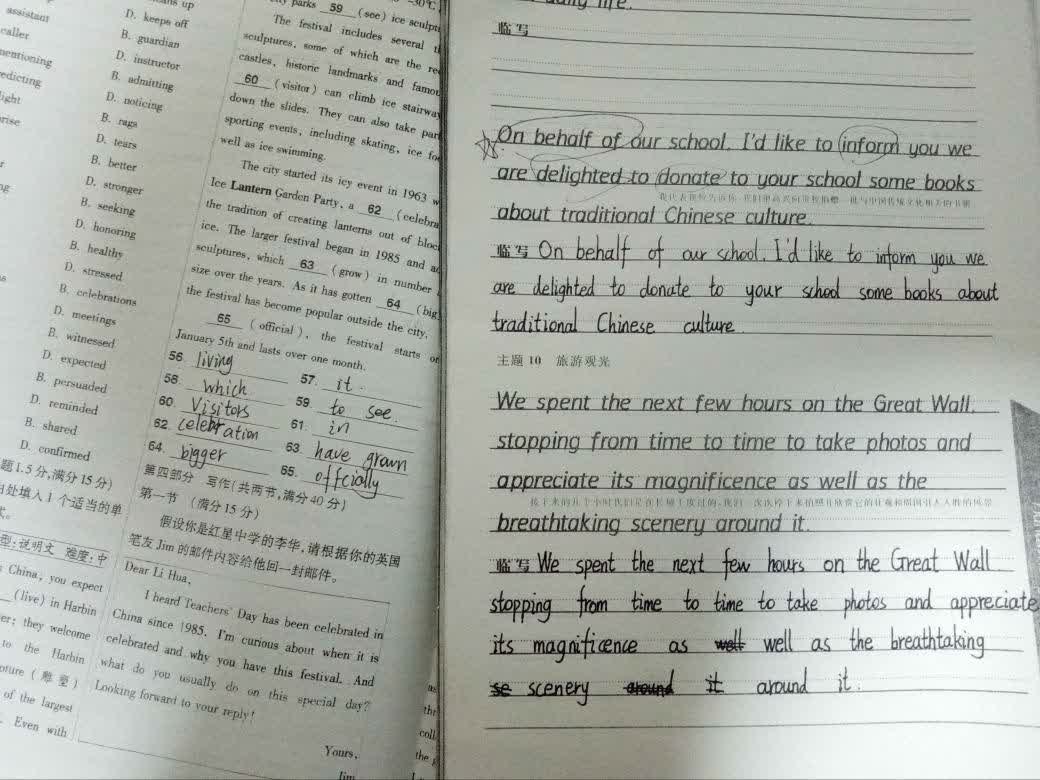 assistant
caller
mentioning
edicting
light
rise
D. keeps off
B. guardian
D. instructor
B. admitting
D. noticing
B. rags
D. tears
B. better
D. stronger
B. seeking
D. honoring
B. healthy
D. stressed
B. celebrations
D. meetings
B. witnessed
D. expected
B. persuaded
D. reminded
B. shared
D. confirmed
题1.5分,满分15分)
处填入1个适当的单
式。
型:说明文 难度:中
China, you expect
(live) in Harbin
er; they welcome
to the Harbin
pture (雕塑)
of the largest
. Even with
parks 59 (see) ice sculpt
The festival includes several
sculptures, some of which are the
castles, historic landmarks and famou
60 (visitor) can climb ice stairway
down the slides. They can also take part
sporting events, including skating, ice
well as ice swimming.
The city started its icy event in 1963 w
Ice Lantern Garden Party, a 62 (celebra
the tradition of creating lanterns out of bloc
ice. The larger festival began in 1985 and
sculptures, which 63 (grow) in number
size over the years. As it has gotten 64 (big
the festival has become popular outside the city.
65 (official), the festival starts on
January 5th and lasts over one month.
56. living 57. it.
58. which 59. to see.
60. Visitors 61. in
62. celebration 63. have grown
64. bigger 65. offcially
第四部分 写作(共两节,满分40分)
第一节 (满分15分)
假设你是红星中学的李华,请根据你的英国
笔友Jim的邮件内容给他回一封邮件。
Dear Li Hua,
I heard Teachers' Day has been celebrated in
China since 1985. I'm curious about when it is
celebrated and why you have this festival. And
what do you usually do on this special day?
Looking forward to your reply!
Yours,
Jim
life.
临写
On behalf of our school, I'd like to inform you we
are delighted to donate to your school some books
about traditional Chinese culture.
临写 On behalf of our school, I'd like to inform you we
are delighted to donate to your school some books about
traditional Chinese culture.
主题10 旅游观光
We spent the next few hours on the Great Wall,
stopping from time to time to take photos and
appreciate its magnificence as well as the
breathtaking scenery around it.
临写 We spent the next few hours on the Great Wall
stopping from time to time to take photos and appreciate
its magnificence as well well as the breathtaking
se scenery around it around it.